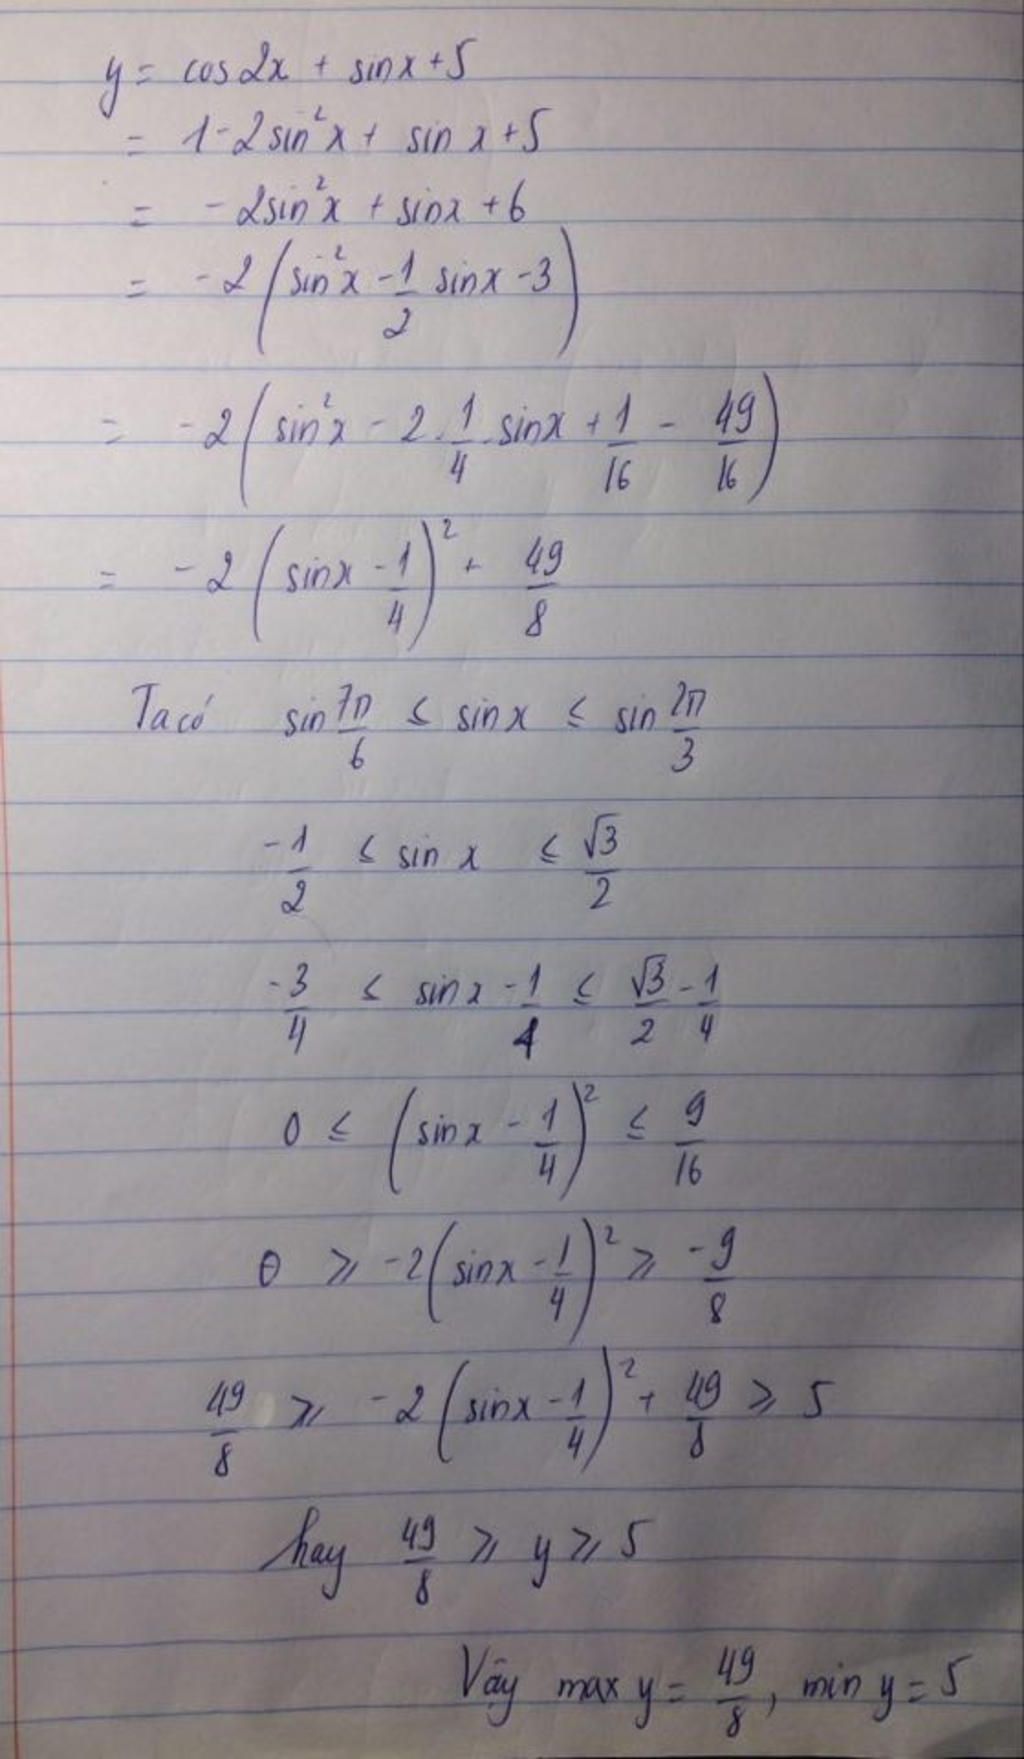 y = cos2x + sinx + 5
= 1 - 2sin²x + sin x + 5
= -2sin²x + sinx + 6
= -2(sin²x - 1/2 sinx - 3)
= -2(sin²x - 2.1/4.sinx + 1/16 - 49/16)
= -2(sinx - 1/4)² + 49/8
Ta có sin 7π/6 ≤ sinx ≤ sin 2π/3
-1/2 ≤ sin x ≤ √3/2
-3/4 ≤ sinx - 1/4 ≤ √3/2 - 1/4
0 ≤ (sinx - 1/4)² ≤ 9/16
0 ⩾ -2(sinx - 1/4)² ⩾ -9/8
49/8 ⩾ -2(sinx - 1/4)² + 49/8 ⩾ 5
hay 49/8 ⩾ y ⩾ 5
Vậy max y = 49/8, min y = 5